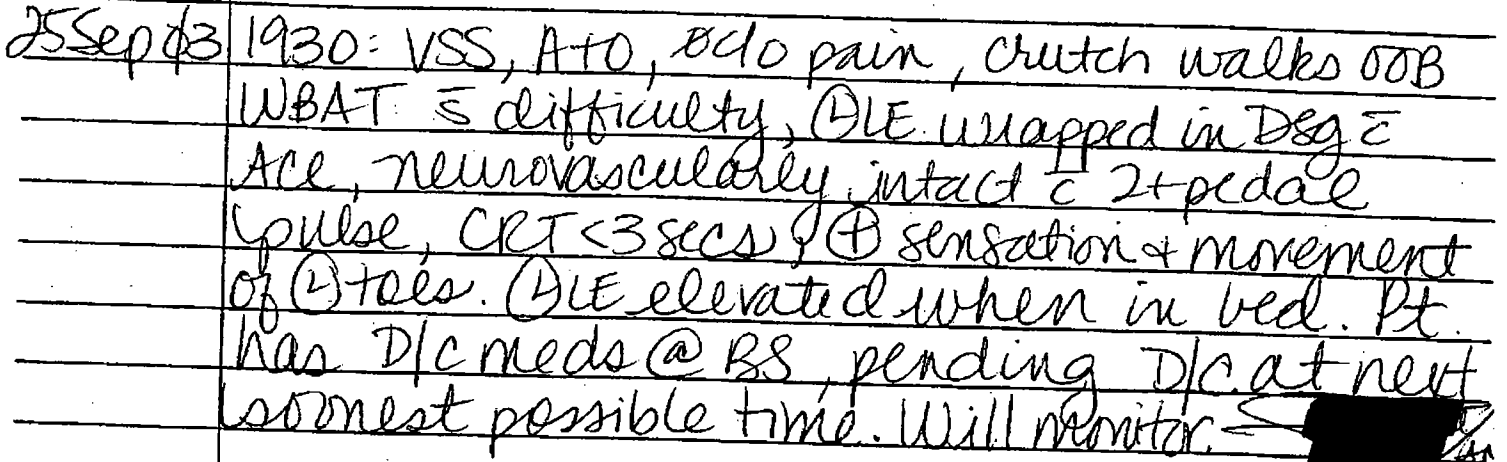 25Sep03 1930: VSS, A+O, ø c/o pain, crutch walks OOB
WBAT s̄ difficulty, Ⓛ LE wrapped in Dsg c̄
Ace, neurovascularly intact c̄ 2+ pedal
pulse, CRT <3 secs, ⊕ sensation + movement
of Ⓛ toes. Ⓛ LE elevated when in bed. Pt.
has D/c meds @ BS, pending D/c at next
soonest possible time. Will monitor.